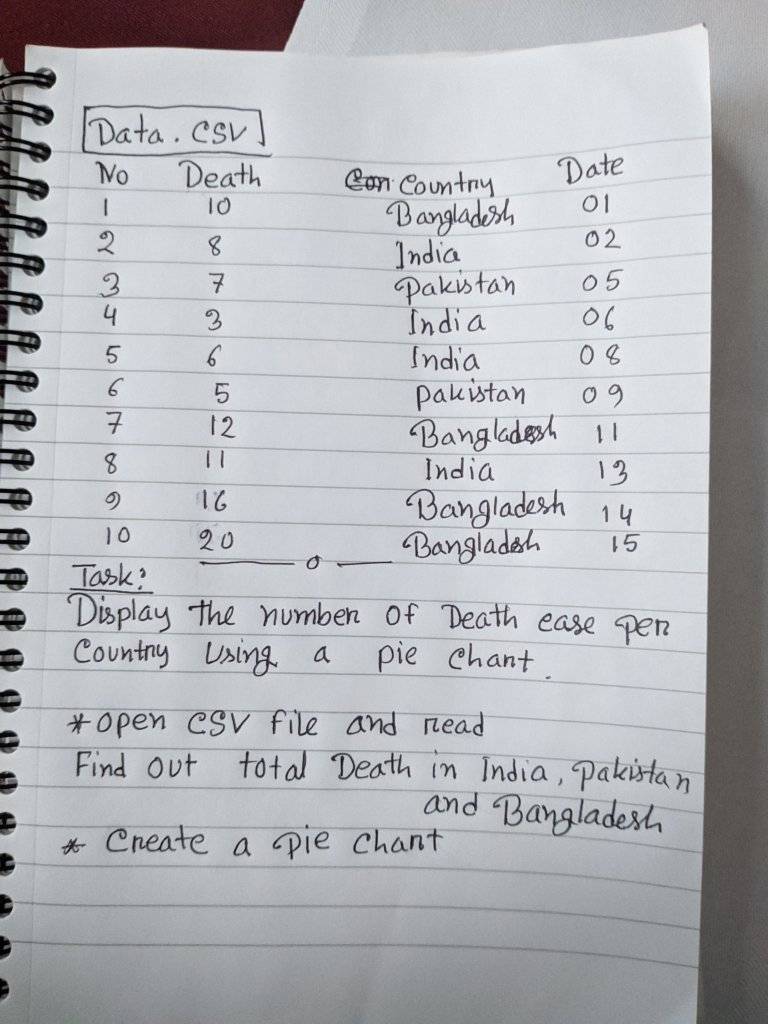 Data.CSV
No Death Country Date
1 10 Bangladesh 01
2 8 India 02
3 7 Pakistan 05
4 3 India 06
5 6 India 08
6 5 Pakistan 09
7 12 Bangladesh 11
8 11 India 13
9 16 Bangladesh 14
10 20 Bangladesh 15
Task:
Display the number of Death case per
Country Using a pie chart.
*open CSV file and read
Find out total Death in India, Pakistan
and Bangladesh
* Create a pie chart